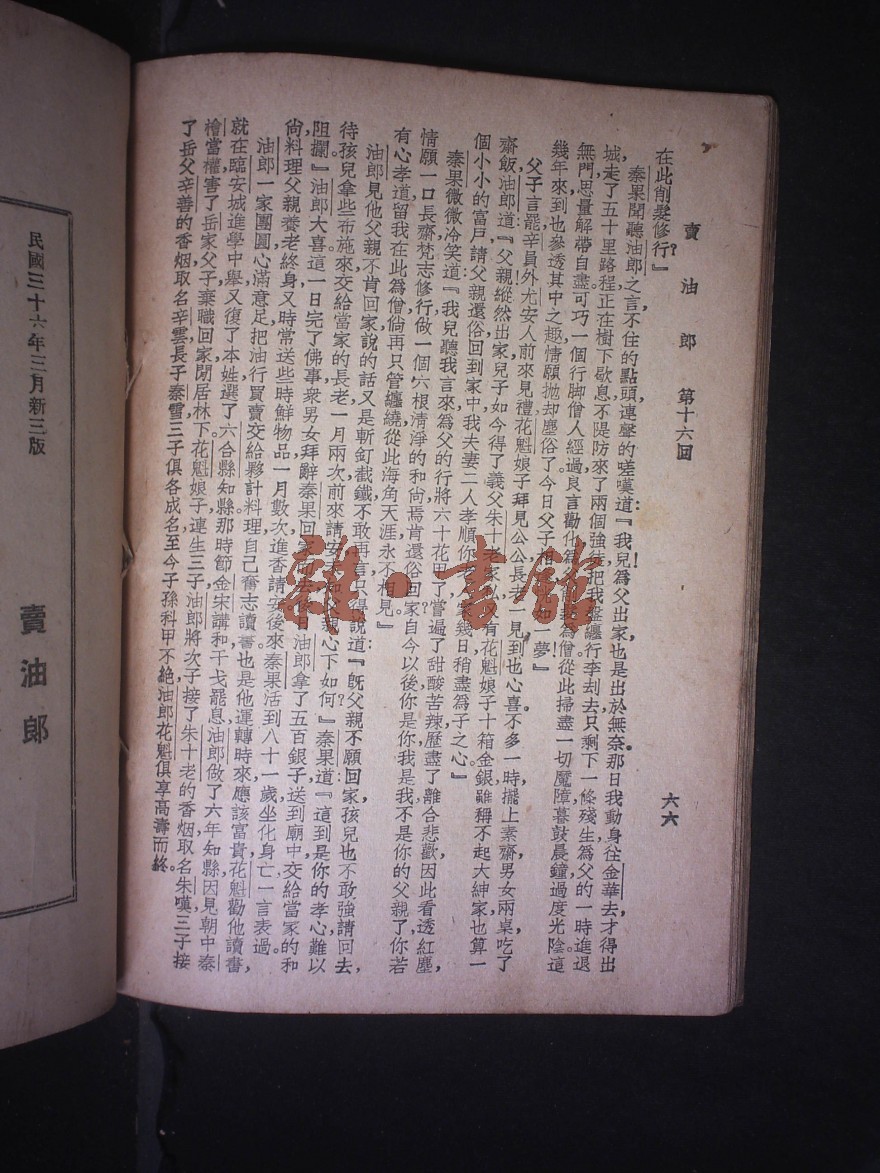 賣油郎 第十六回 六六
在此削髮修行？』
秦果聞聽油郎之言不住的點頭，連聲的嗟嘆道：『我兒！爲父出家，也是出於無奈。那日我動身往金華去，才得出
城，走了五十里路程，正在樹下歇息，不隄防來了兩個強徒，把我盤纏行李刦去，只剩下一條殘生。爲父的一時進退
無門，思量解帶自盡，可巧一個行脚僧人經過，良言勸化，爲僧。從此掃盡一切魔障，暮鼓晨鐘，過度光陰，這
幾年來，到也參透其中之趣，情願抛却塵俗了。今日父子相如一夢！』
父子言罷，辛員外尤安人前來見禮，花魁娘子拜見公公，長老一見，到也心喜。不多一時，擺上素齋，男女兩桌，吃了
齋飯，油郎道：『父親縱然出家，兒子如今得了義父朱十老家有花魁娘子十箱金銀，雖稱不起大紳家，也算一
個小小的富戶，請父親還俗，回到家中，我夫妻二人孝順你家幾日，稍盡爲子之心。』
秦果微微冷笑道：『我兒聽我言來，爲父的行將六十花甲了，嘗遍了甜酸苦辣，歷盡了離合悲歡，因此看透紅塵，
情願一口長齋，梵志修行，做一個六根清淨的和尙，焉肯還俗回家？自今以後，你是你，我是我，不是你的父親了。你若
有心孝道，留我在此爲僧，倘再只管纏繞，從此海角天涯，永不相見。』
油郎見他父親不肯回家，說的話又是斬釘截鐵，不敢再言，只得說道：『旣父親不願回家，孩兒也不敢強請回去，
待孩兒拿些布施來，交給當家的長老，一月兩次前來請安，不知父親心下如何？』秦果道：『這到是你的孝心，難以
阻攔。』油郎大喜，這一日完了佛事，衆男女拜辭秦果，回家日，油郎拿了五百銀子，送到廟中，交給當家的和
尙，料理父親養老終身，又時常送些時鮮物品，一月數次進香請安，後來秦果活到八十一歲，坐化身亡，一言表過。
油郎一家團圓，心滿意足，把油行買賣交給夥計料理，自己奮志讀書，也是他運轉時來，應該富貴，花魁勸他讀書，
就在臨安城進學中舉，又復了本姓，選了六合縣知縣。那時節金宋講和，干戈罷息，油郎做了六年知縣，因見朝中秦
檜當權，害了岳家父子，棄職回家，閒居林下，花魁娘子連生三子，油郎將次子接了朱十老的香烟，取名朱嘆，三子接
了岳父辛善的香烟，取名辛雲，長子秦雪，三子俱各成名，至今子孫科甲不絕，油郎花魁俱享高壽而終。
民國三十六年三月新三版
賣油郎
雜·書館